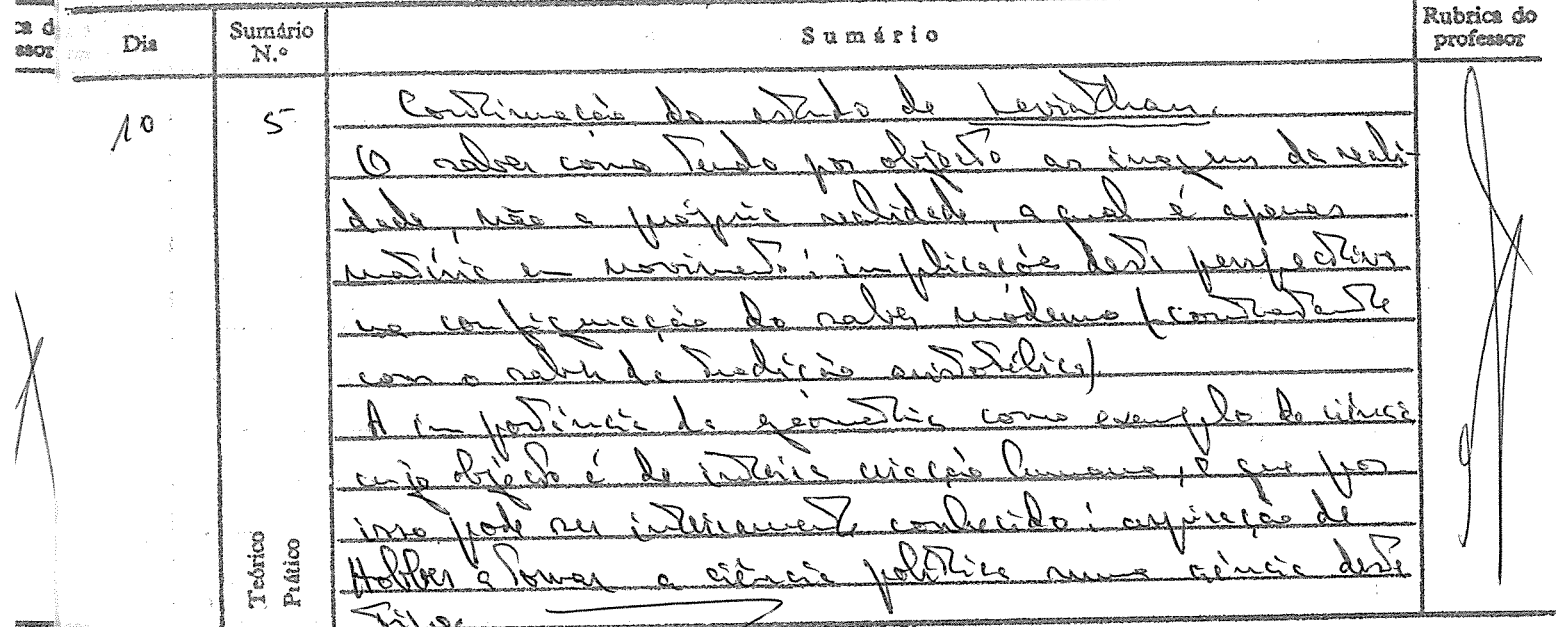 ca d
ssor
Dia
Sumário
N.º
Sumário
Rubrica do
professor
10
5
Continuação do estudo de Leviathan.
O saber como tendo por objecto as imagens da reali-
dade, não a própria realidade, a qual é apenas
matéria em movimento; implicação desta perspectiva
na configuração do saber moderno (contrastante
com o saber da tradição aristotélica)
A importância da geometria como exemplo de ciência
cujo objecto é de inteira criação humana, e que por
isso pode ser inteiramente conhecido; aspiração de
Hobbes a tornar a ciência política numa ciência deste
tipo.
Teórico
Prático